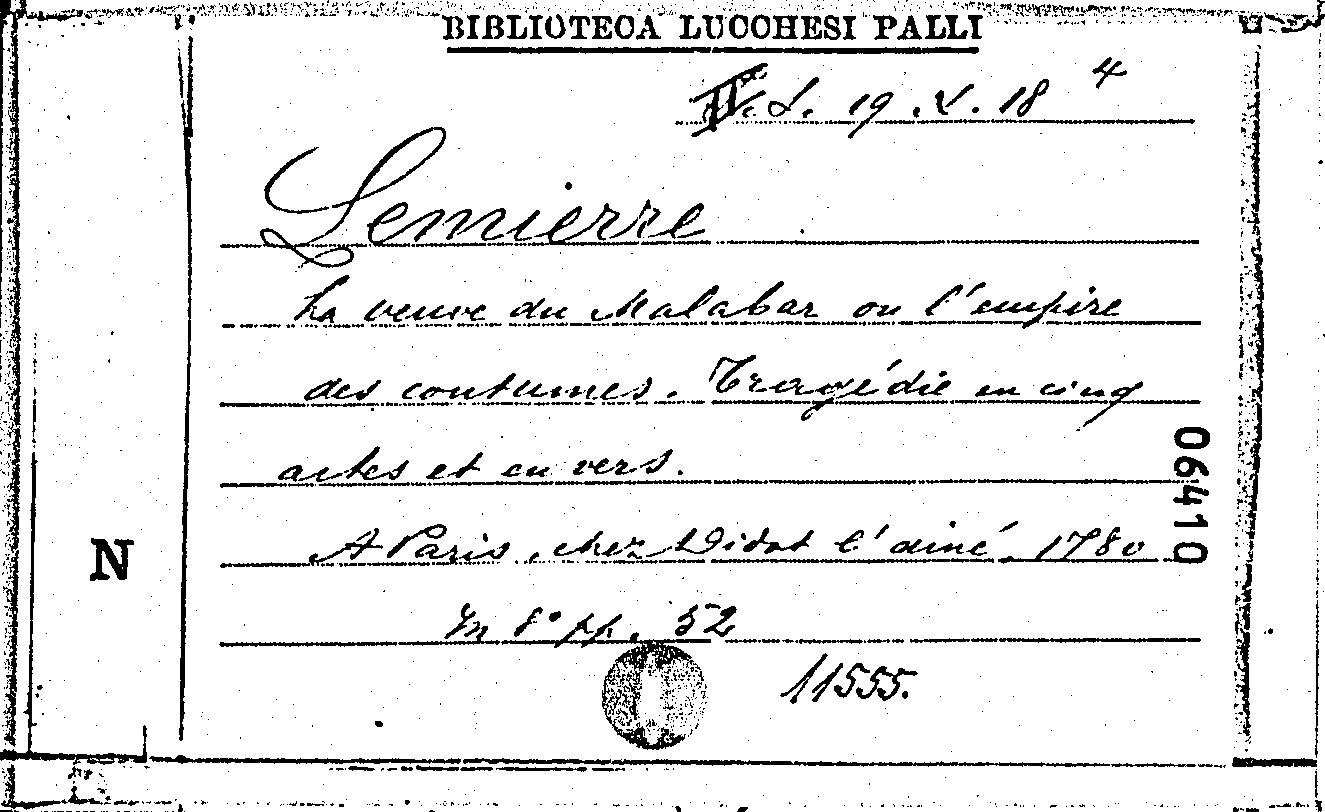 BIBLIOTECA LUCCHESI PALLI
IV. L. 19. V. 18 4
Lemierre
La veuve du Malabar ou l'empire
des coutumes. Tragédie en cinq
actes et en vers.
A Paris, chez Didot l'ainé, 1780
In 8° pp. 52
11555.
06410
N